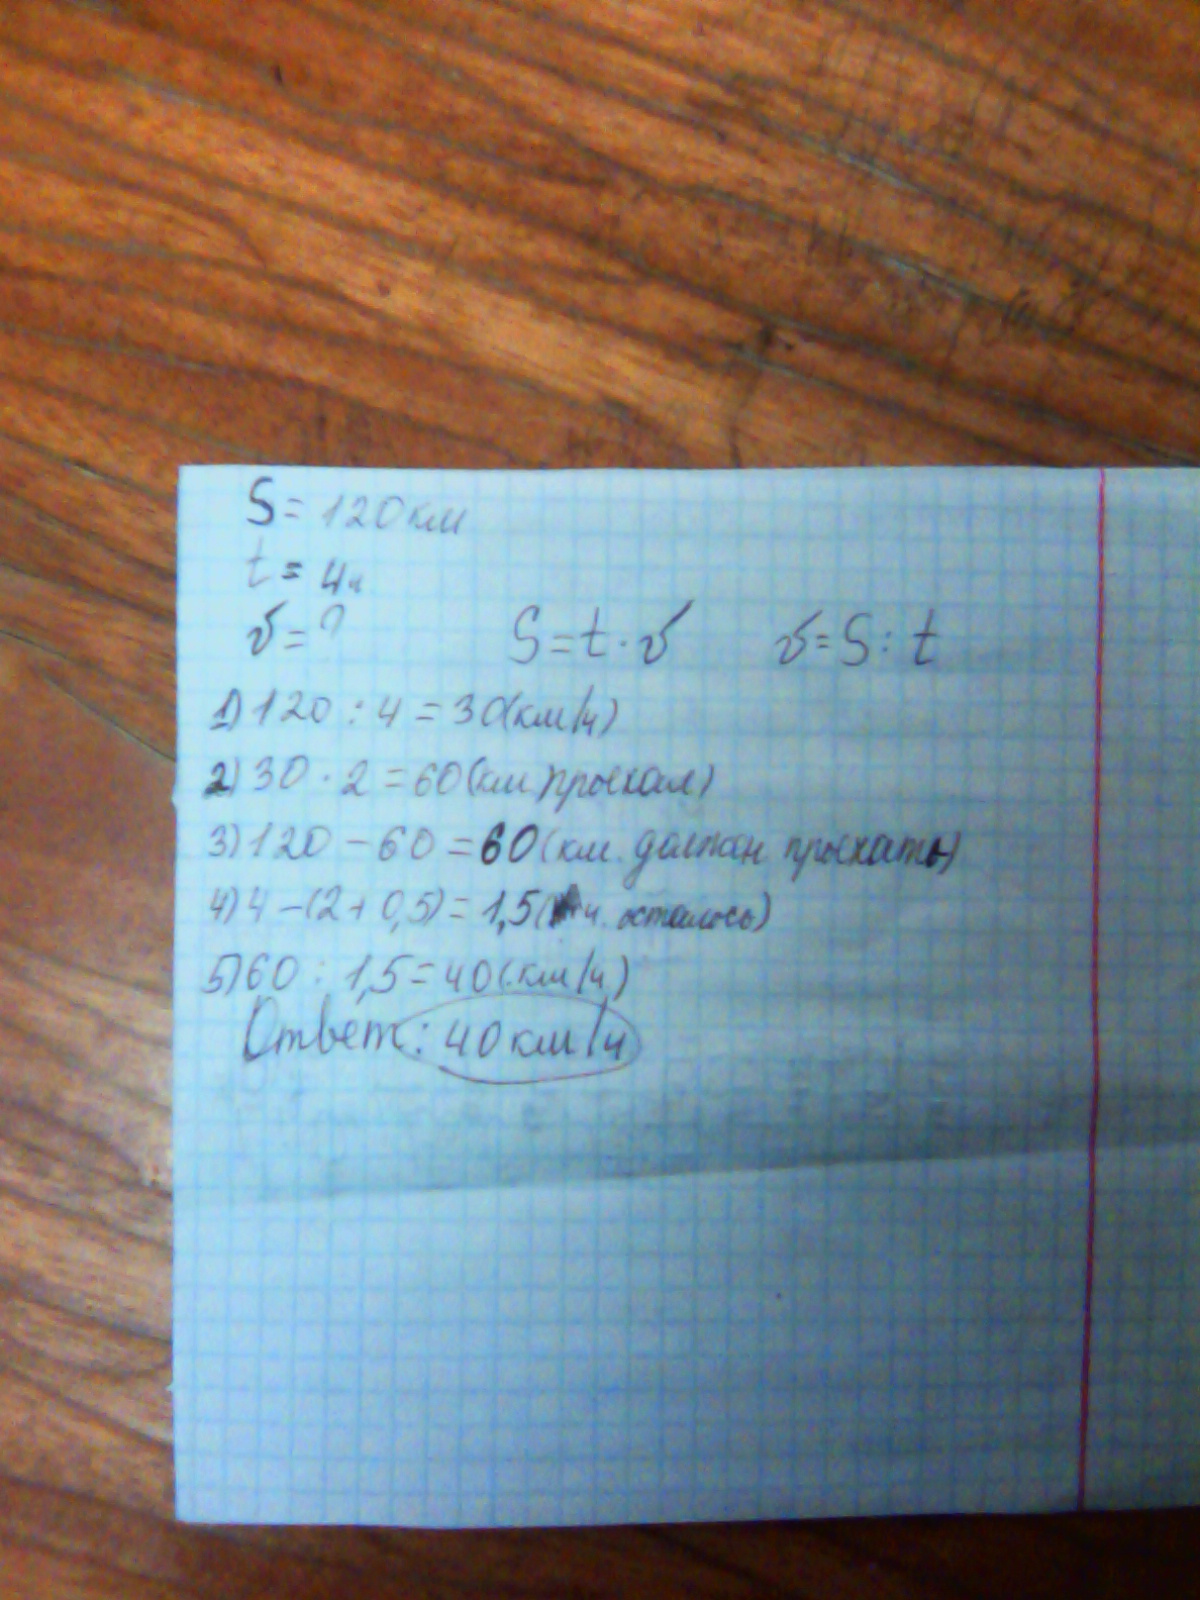 S = 120 км
t = 4ч
v = ?
S = t · v v = S : t
1) 120 : 4 = 30(км/ч)
2) 30 · 2 = 60(км проехал)
3) 120 - 60 = 60(км. должен проехать)
4) 4 - (2 + 0,5) = 1,5(ч. осталось)
5) 60 : 1,5 = 40(км/ч)
Ответ: 40 км/ч